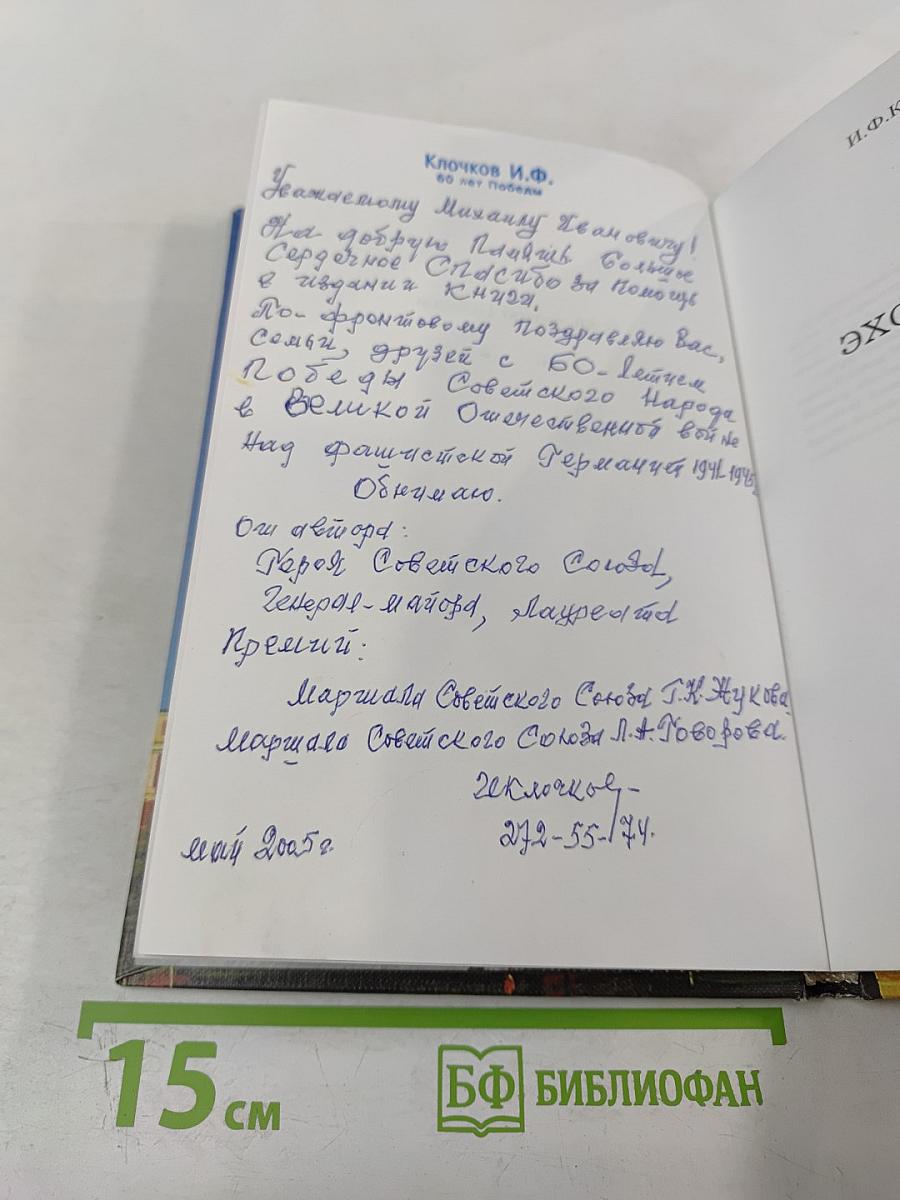 Клочков И.Ф.
60 лет Победы
Уважаемому Михаилу Ивановичу!
На добрую Память. Большое
Сердечное Спасибо за помощь
в издании книги.
По-фронтовому поздравляю Вас,
семьи, друзей с 60-летием
Победы Советского Народа
в Великой Отечественной войне
Над фашистской Германией 1941-1945
Обнимаю.
От автора:
Героя Советского Союза,
Генерал-майора, Лауреата
Премий:
Маршала Советского Союза Г.К.Жукова
Маршала Советского Союза Л.А.Говорова.
ИКлочков
272-55-74.
май 2005г.
И.Ф.К
ЭХО
15 см
БФ БИБЛИОФАН